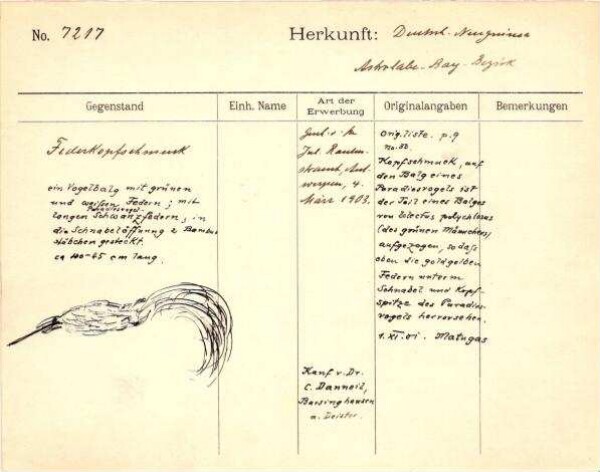 No. 7217
Herkunft: Deutsch-Neuguinea
Astrolabe-Bay-Bezirk
Gegenstand
Einh. Name
Art der
Erwerbung
Originalangaben
Bemerkungen
Federkopfschmuck
ein Vogelbalg mit grünen
und weißen Federn; mit
langen Schwanzfedern; in
die Schnabelöffnung 2 Bambus
stäbchen gesteckt.
ca 40-45 cm lang.
Jul. Rauten-
strauch, Ant-
werpen, 4.
März 1903.
Kauf v. Dr.
C. Danneil,
Barsinghausen
a. Deister.
Orig. liste. p. 9
No. 80
Kopfschmuck, auf
den Balg eines
Paradiesvogels ist
der Teil eines Balges
von Electus polychlorus
(des grünen Männchens)
aufgezogen, so daß
oben die goldgelben
Federn unterm
Schnabel und Kopf-
spitze des Paradies-
vogels hervorsehen.
1. XI. 01. Matugas